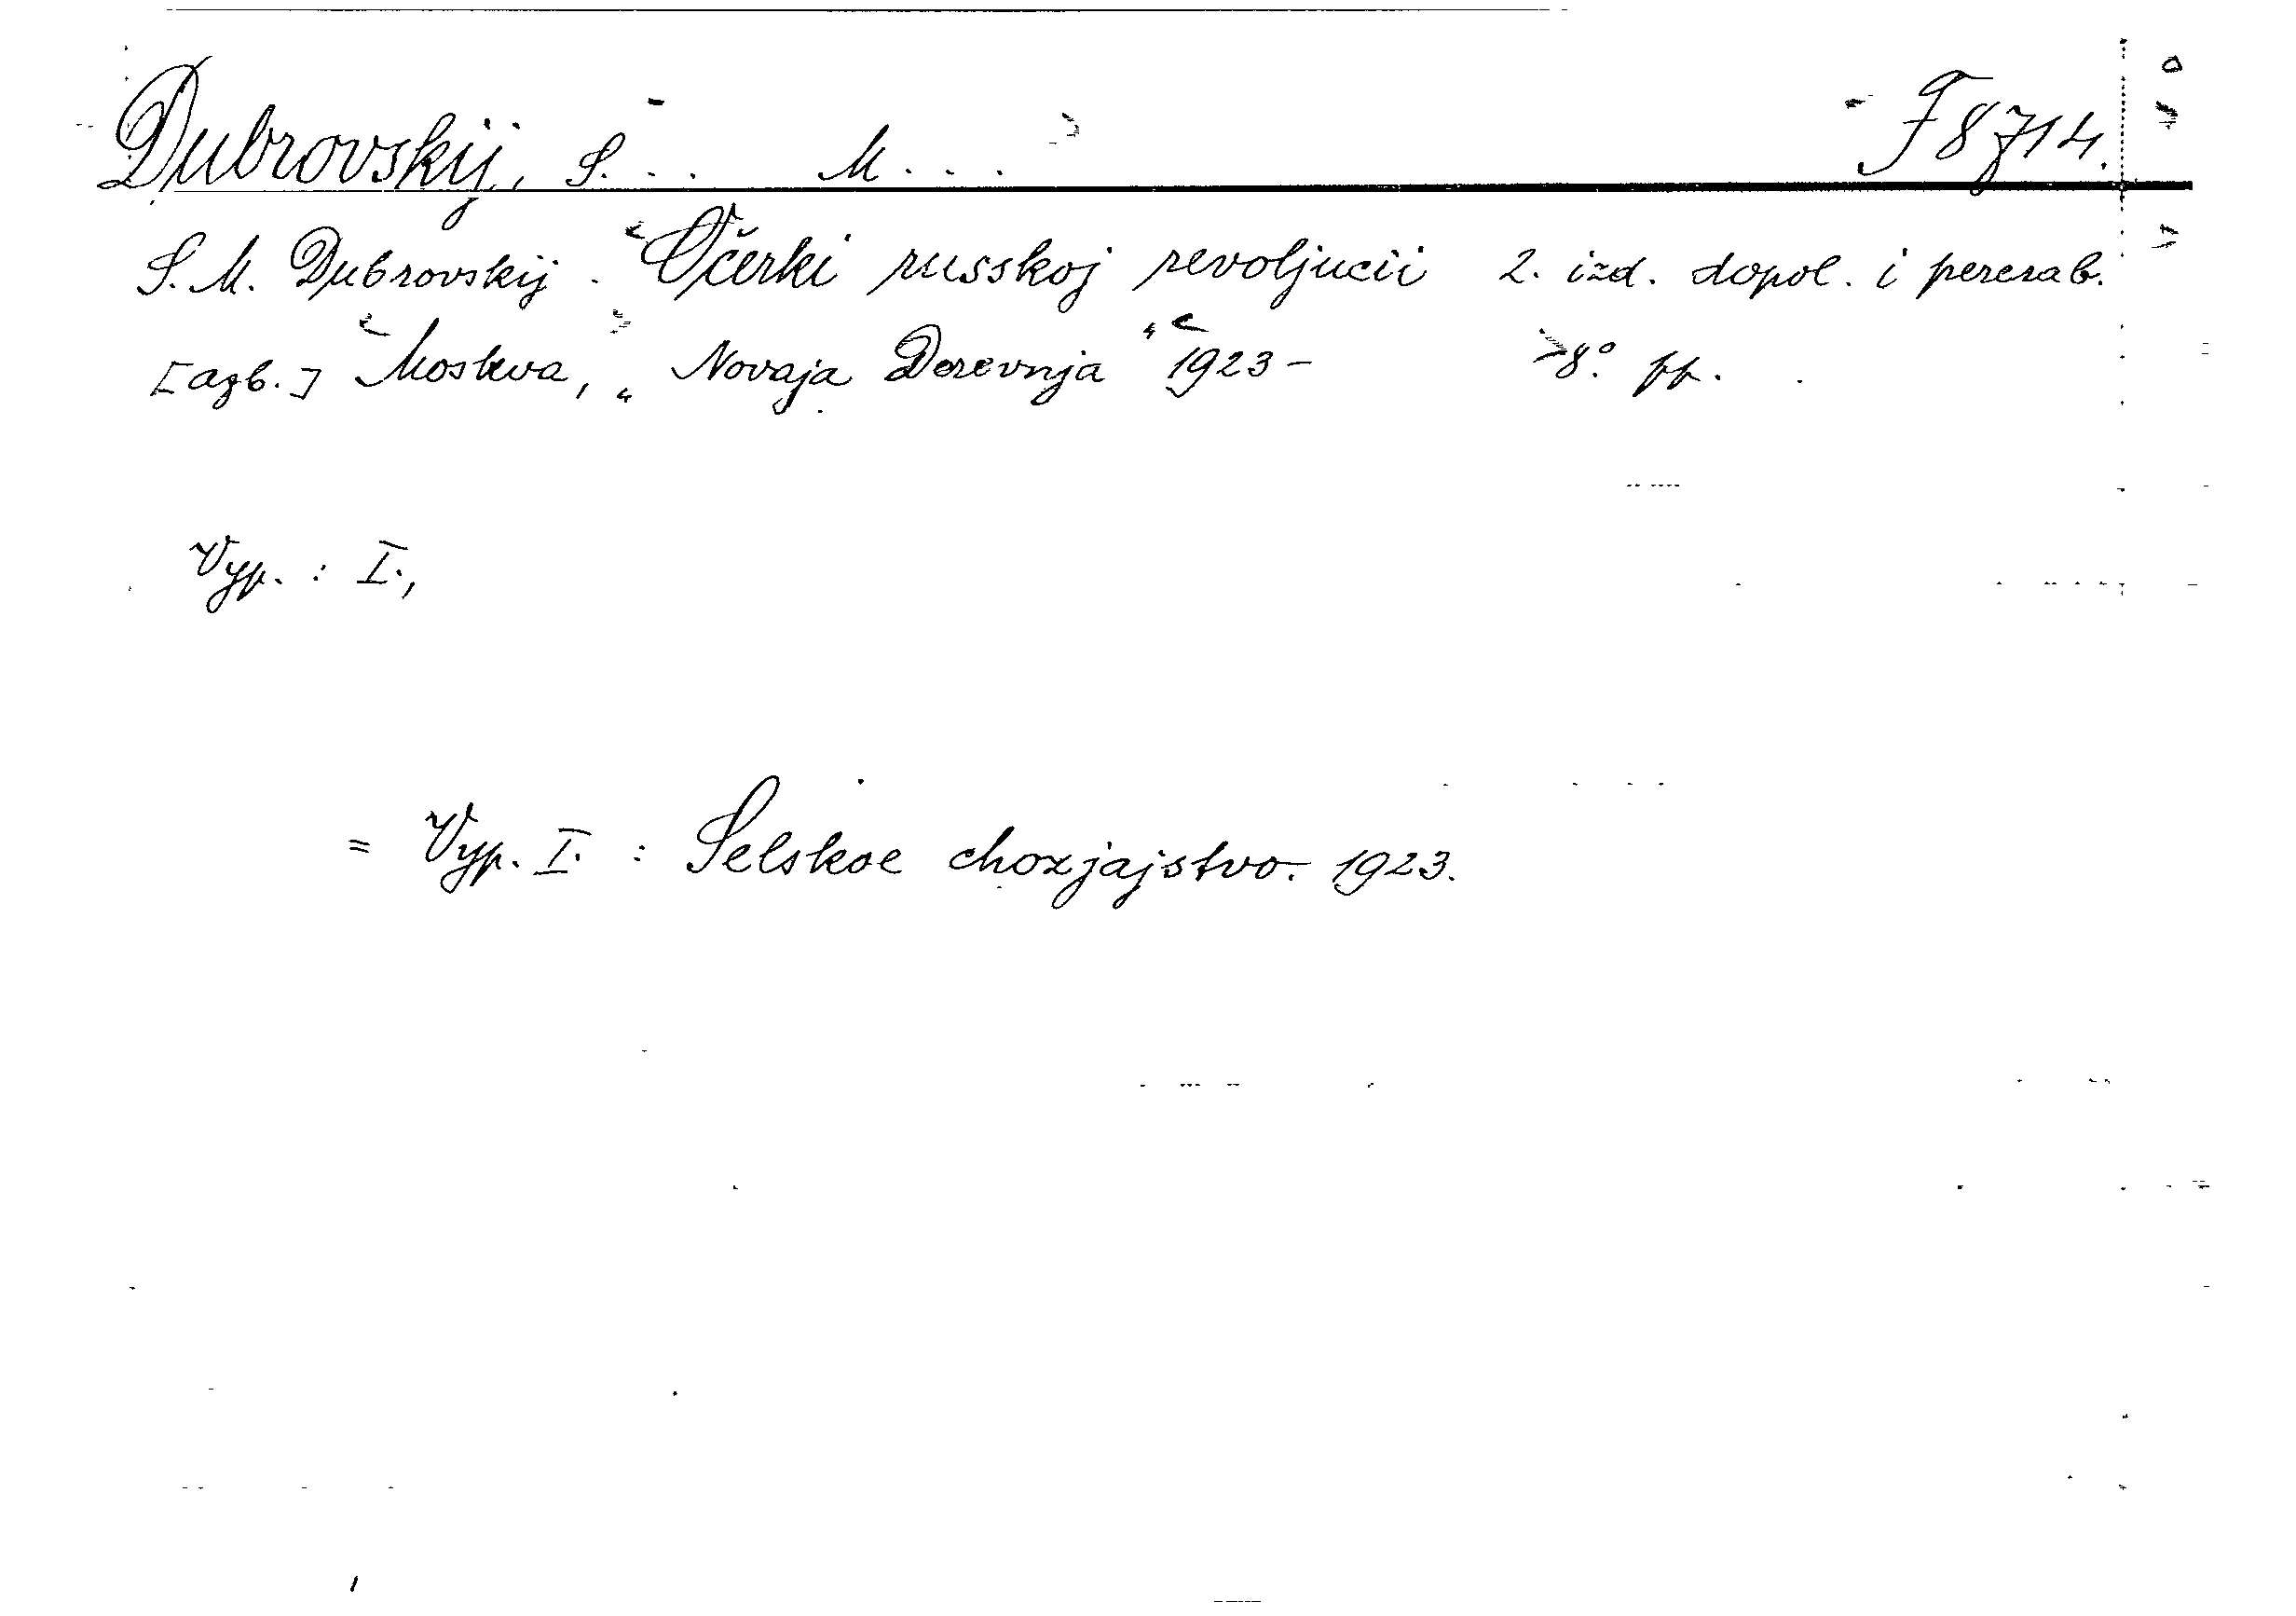 Dubrovskij, S. . . M. . . F 8714.
S. M. Dubrovskij. Očerki russkoj revoljucii 2. izd. dopol. i pererab.
[azb.] Moskva, „Novaja Derevnja“ 1923– 8°. pp.
Vyp. : I.,
= Vyp. I. : Selskoe chozjajstvo. 1923.